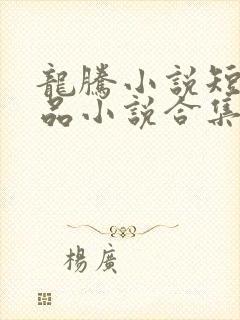 龍騰小說短
品小說合集
楊廣